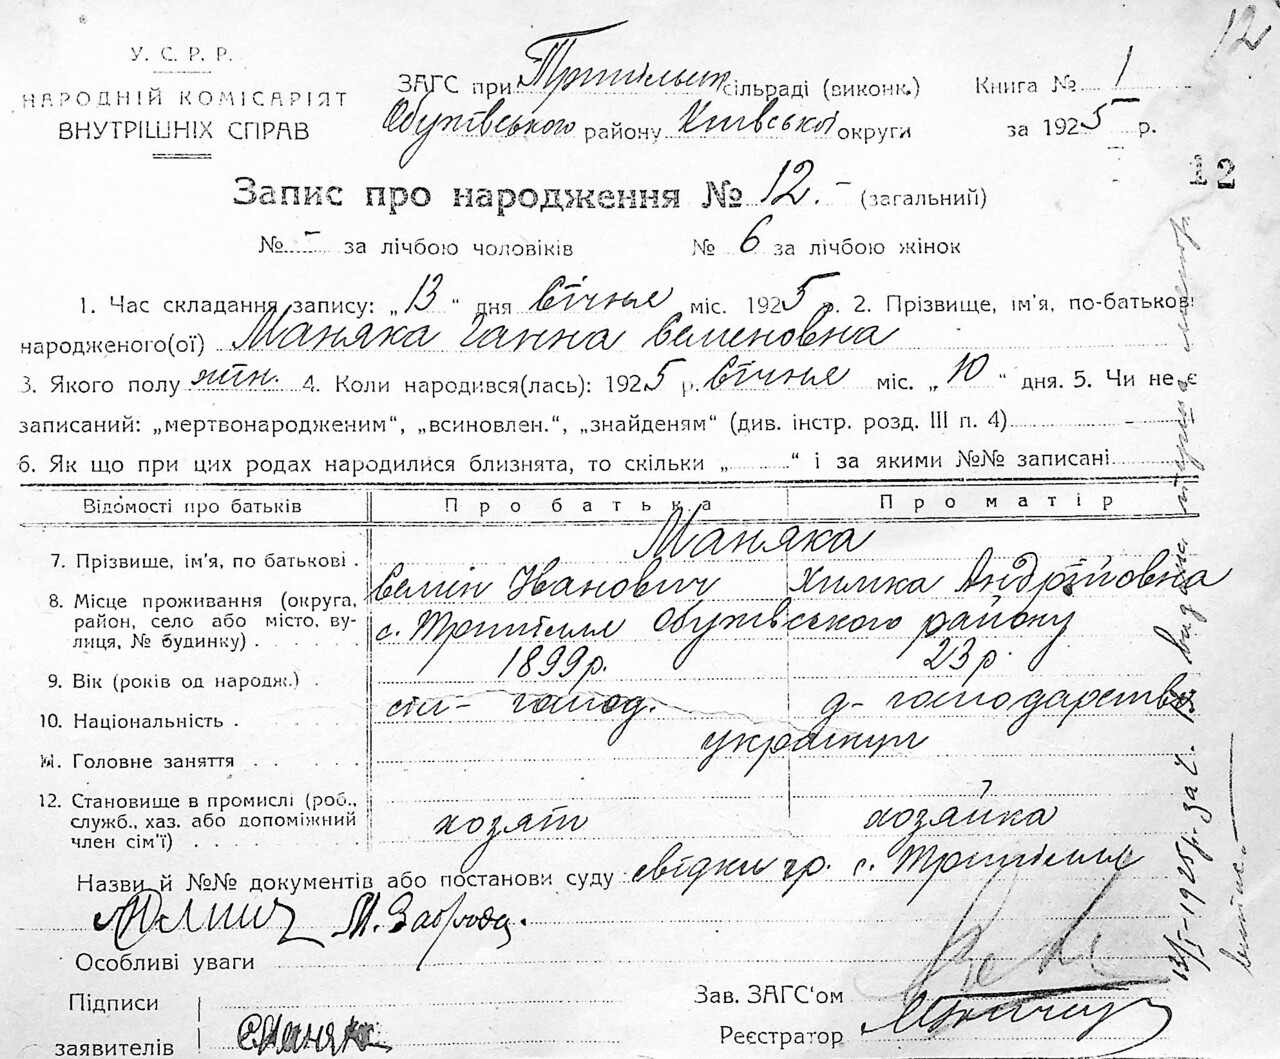 12
У. С. Р. Р.
НАРОДНІЙ КОМІСАРІЯТ
ВНУТРІШНІХ СПРАВ
ЗАГС при Трипільськ сільраді (виконк.)
Обухівського району Київської округи
Книга № 1
за 1925 р.
12
Запис про народження № 12.- (загальний)
№ - за лічбою чоловіків № 6 за лічбою жінок
1. Час складання запису: „13" дня Січня міс. 1925 р. 2. Прізвище, ім'я, по-батькові
народженого(ої) Маняка Ганна Семеновна
3. Якого полу жін. 4. Коли народився(лась): 1925 р. Січня міс. „10" дня. 5. Чи не є
записаний: „мертвонародженим", „всиновлен.", „знайденям" (див. інстр. розд. III п. 4) -
6. Як що при цих родах народилися близнята, то скільки „ " і за якими №№ записані
Відомості про батьків Про батька Про матір
7. Прізвище, ім'я, по батькові . Маняка
Семін Іванович Химка Андрійовна
8. Місце проживання (округа, район, село або місто, вулиця, № будинку) . с. Трипілля Обухівського району
9. Вік (років од народж.) . 1899 р. 23 р.
10. Національність . сіл- господ. д- господарство
11. Головне заняття українці
12. Становище в промислі (роб., служб., хаз. або допоміжний член сім'ї) . хозяін хозяйка
Назви й №№ документів або постанови суду свідки гр. с. Трипілля
М. Заброда.
Особливі уваги
Підписи
заявителів С Маняка
Зав. ЗАГС'ом
Реєстратор
13/I-1925 р. за ч. 13 видана